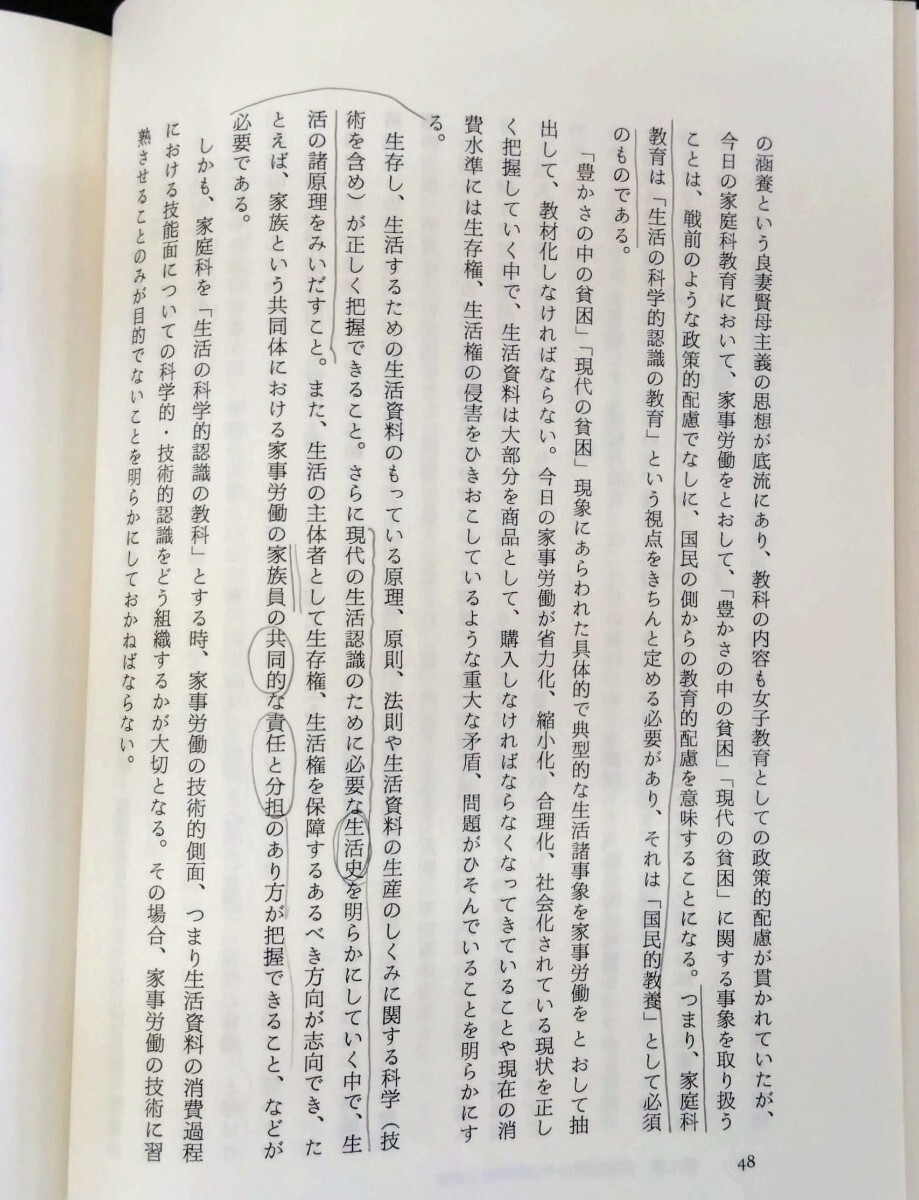 の涵養という良妻賢母主義の思想が底流にあり、教科の内容も女子教育としての政策的配慮が貫かれていたが、
今日の家庭科教育において、家事労働をとおして、「豊かさの中の貧困」「現代の貧困」に関する事象を取り扱う
ことは、戦前のような政策的配慮でなしに、国民の側からの教育的配慮を意味することになる。つまり、家庭科
教育は「生活の科学的認識の教育」という視点をきちんと定める必要があり、それは「国民的教養」として必須
のものである。
「豊かさの中の貧困」「現代の貧困」現象にあらわれた具体的で典型的な生活諸事象を家事労働を と おして抽
出して、教材化しなければならない。今日の家事労働が省力化、縮小化、合理化、社会化されている現状を正し
く把握していく中で、生活資料は大部分を商品として、購入しなければならなくなってきていることや現在の消
費水準には生存権、生活権の侵害をひきおこしているような重大な矛盾、問題がひそんでいることを明らかにす
る。
生存し、生活するための生活資料のもっている原理、原則、法則や生活資料の生産のしくみに関する科学（技
術を含め）が正しく把握できること。さらに現代の生活認識のために必要な生活史を明らかにしていく中で、生
活の諸原理をみいだすこと。また、生活の主体者として生存権、生活権を保障するあるべき方向が志向でき、た
とえば、家族という共同体における家事労働の家族員の共同的な責任と分担のあり方が把握できること、などが
必要である。
しかも、家庭科を「生活の科学的認識の教科」とする時、家事労働の技術的側面、つまり生活資料の消費過程
における技能面についての科学的・技術的認識をどう組織するかが大切となる。その場合、家事労働の技術に習
熟させることのみが目的でないことを明らかにしておかねばならない。
48